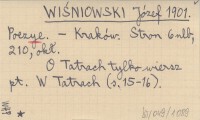 WIŚNIOWSKI Józef 1901.
Poezye. - Kraków. Stron 6nlb,
210, okł.
O Tatrach tylko wiersz
pt. W Tatrach (s. 15-16).